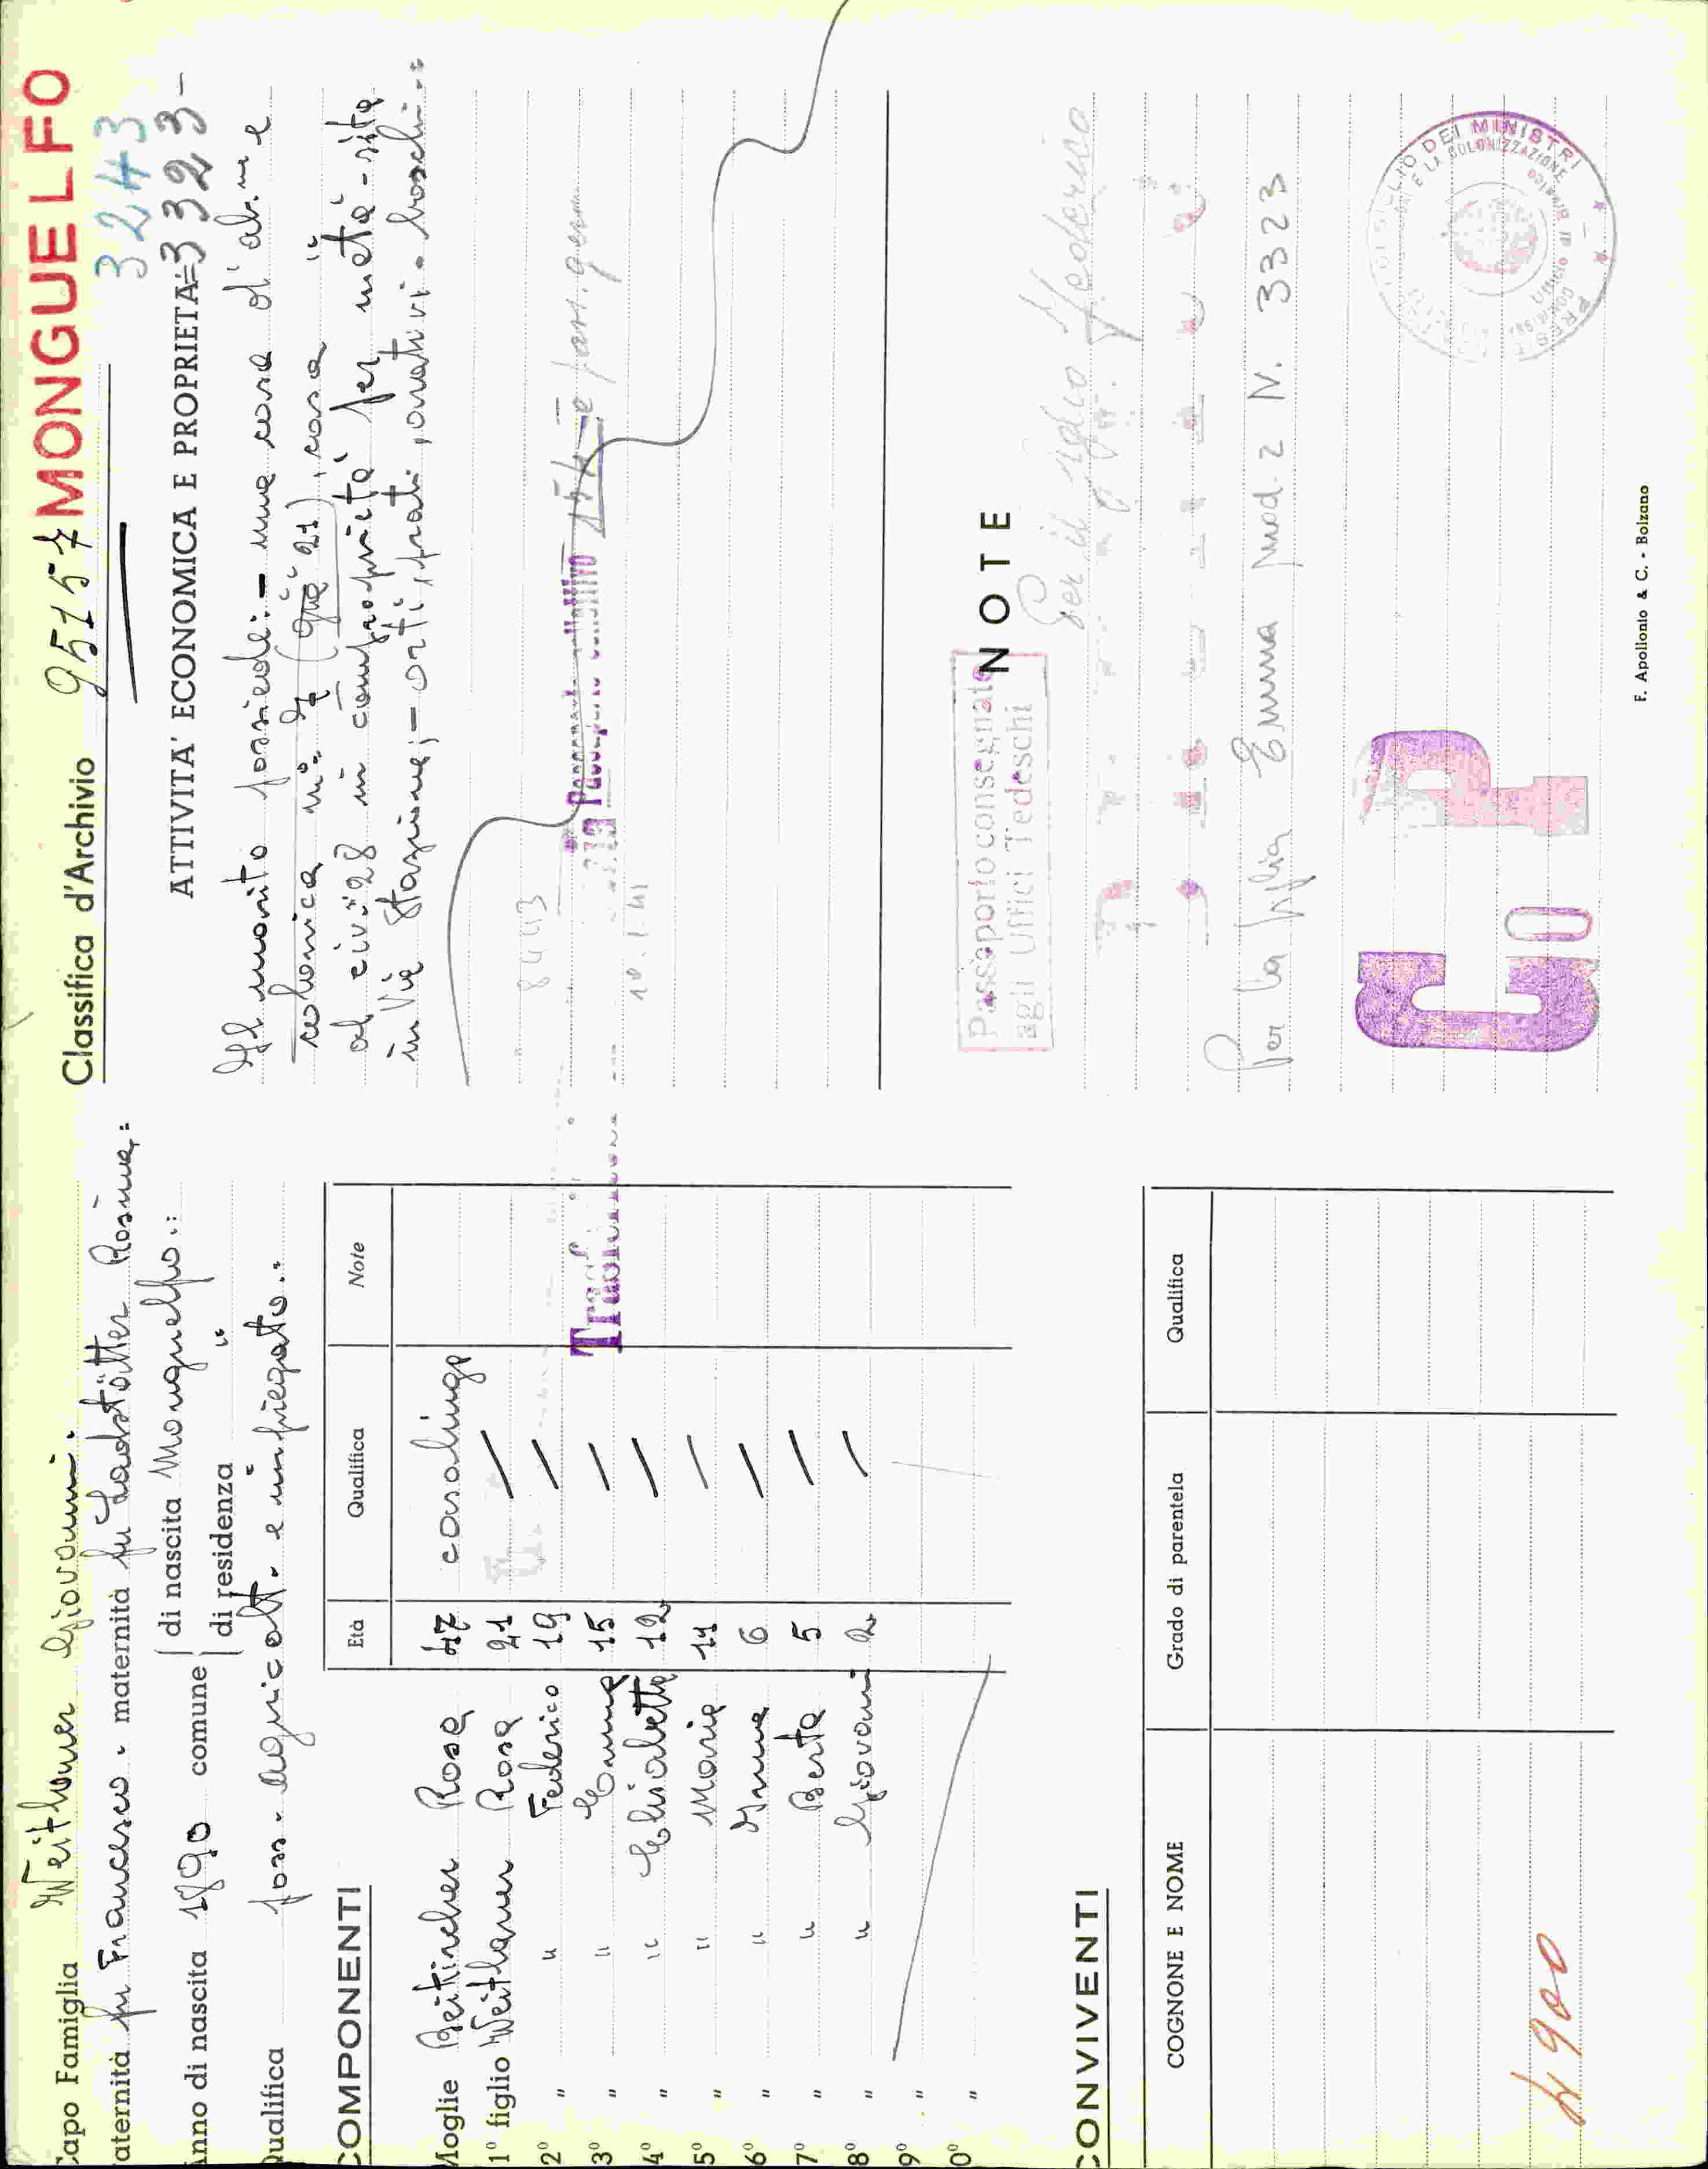 Capo Famiglia Weithaner Giovanni.
aternità fu Francesco. maternità fu Ladstötter Rosina.
Anno di nascita 1890 comune di nascita Monguelfo.
di residenza "
Qualifica poss. agricolt. e impiegato.
COMPONENTI
Età Qualifica Note
Moglie Beikircher Rosa 47 casalinga
1° figlio Weithaner Rosa 21 /
2° " " Federico 19 /
3° " " Emma 15 /
4° " " Elisabetta 12 /
5° " " Maria 11 /
6° " " Anna 6 /
7° " " Berta 5 /
8° " " Giovanni 2 /
9° "
0° "
CONVIVENTI
COGNONE E NOME Grado di parentela Qualifica
4900
Classifica d'Archivio 95157 MONGUELFO
3243
ATTIVITA' ECONOMICA E PROPRIETA' = 3323 -
Il marito possiede: - una casa d'
colonica n° 7 (già 21), casa "
al civ. 28 in comproprietà per metà - sita
in Via Stazione; - orti, prati, arativi - boschi.
8443
Passaporto collettivo
10.1.41
NOTE
Passaporto consegnato
agli Uffici Tedeschi
Per il figlio Federico
Per la figlia Emma Mod. 2 N. 3323
C P
DEI MINISTRI
E LA COLONIZZAZIONE
F. Apollonio & C. - Bolzano